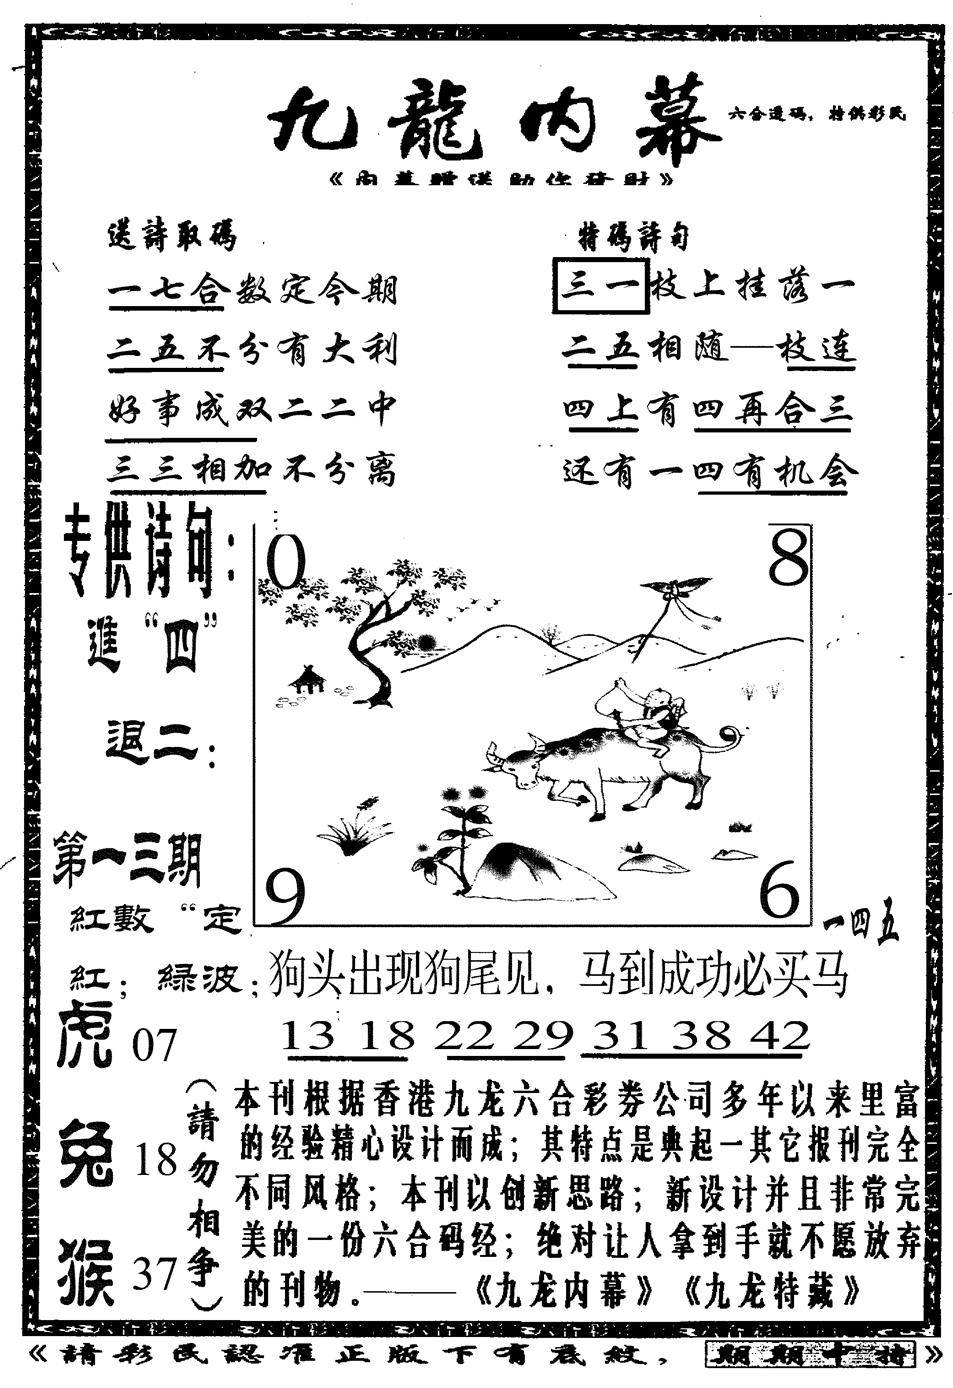 九龍内幕
六合透码，特供彩民
《内幕赠送助你發財》
送詩取碼
一七合数定今期
二五不分有大利
好事成双二二中
三三相加不分离
特碼詩句
三一枝上挂落一
二五相随—枝连
四上有四再合三
还有一四有机会
专供诗句：
進“四”
退二：
第一三期
紅數“定
紅；綠波；
0
8
9
6
一四五
狗头出现狗尾见，马到成功必买马
13 18 22 29 31 38 42
虎 07
兔 18
猴 37
（請勿相争）
本刊根据香港九龙六合彩券公司多年以来里富
的经验精心设计而成；其特点是典起一其它报刊完全
不同风格；本刊以创新思路；新设计并且非常完
美的一份六合码经；绝对让人拿到手就不愿放弃
的刊物。———《九龙内幕》《九龙特藏》
《請彩民認准正版下有底紋，期期中特》